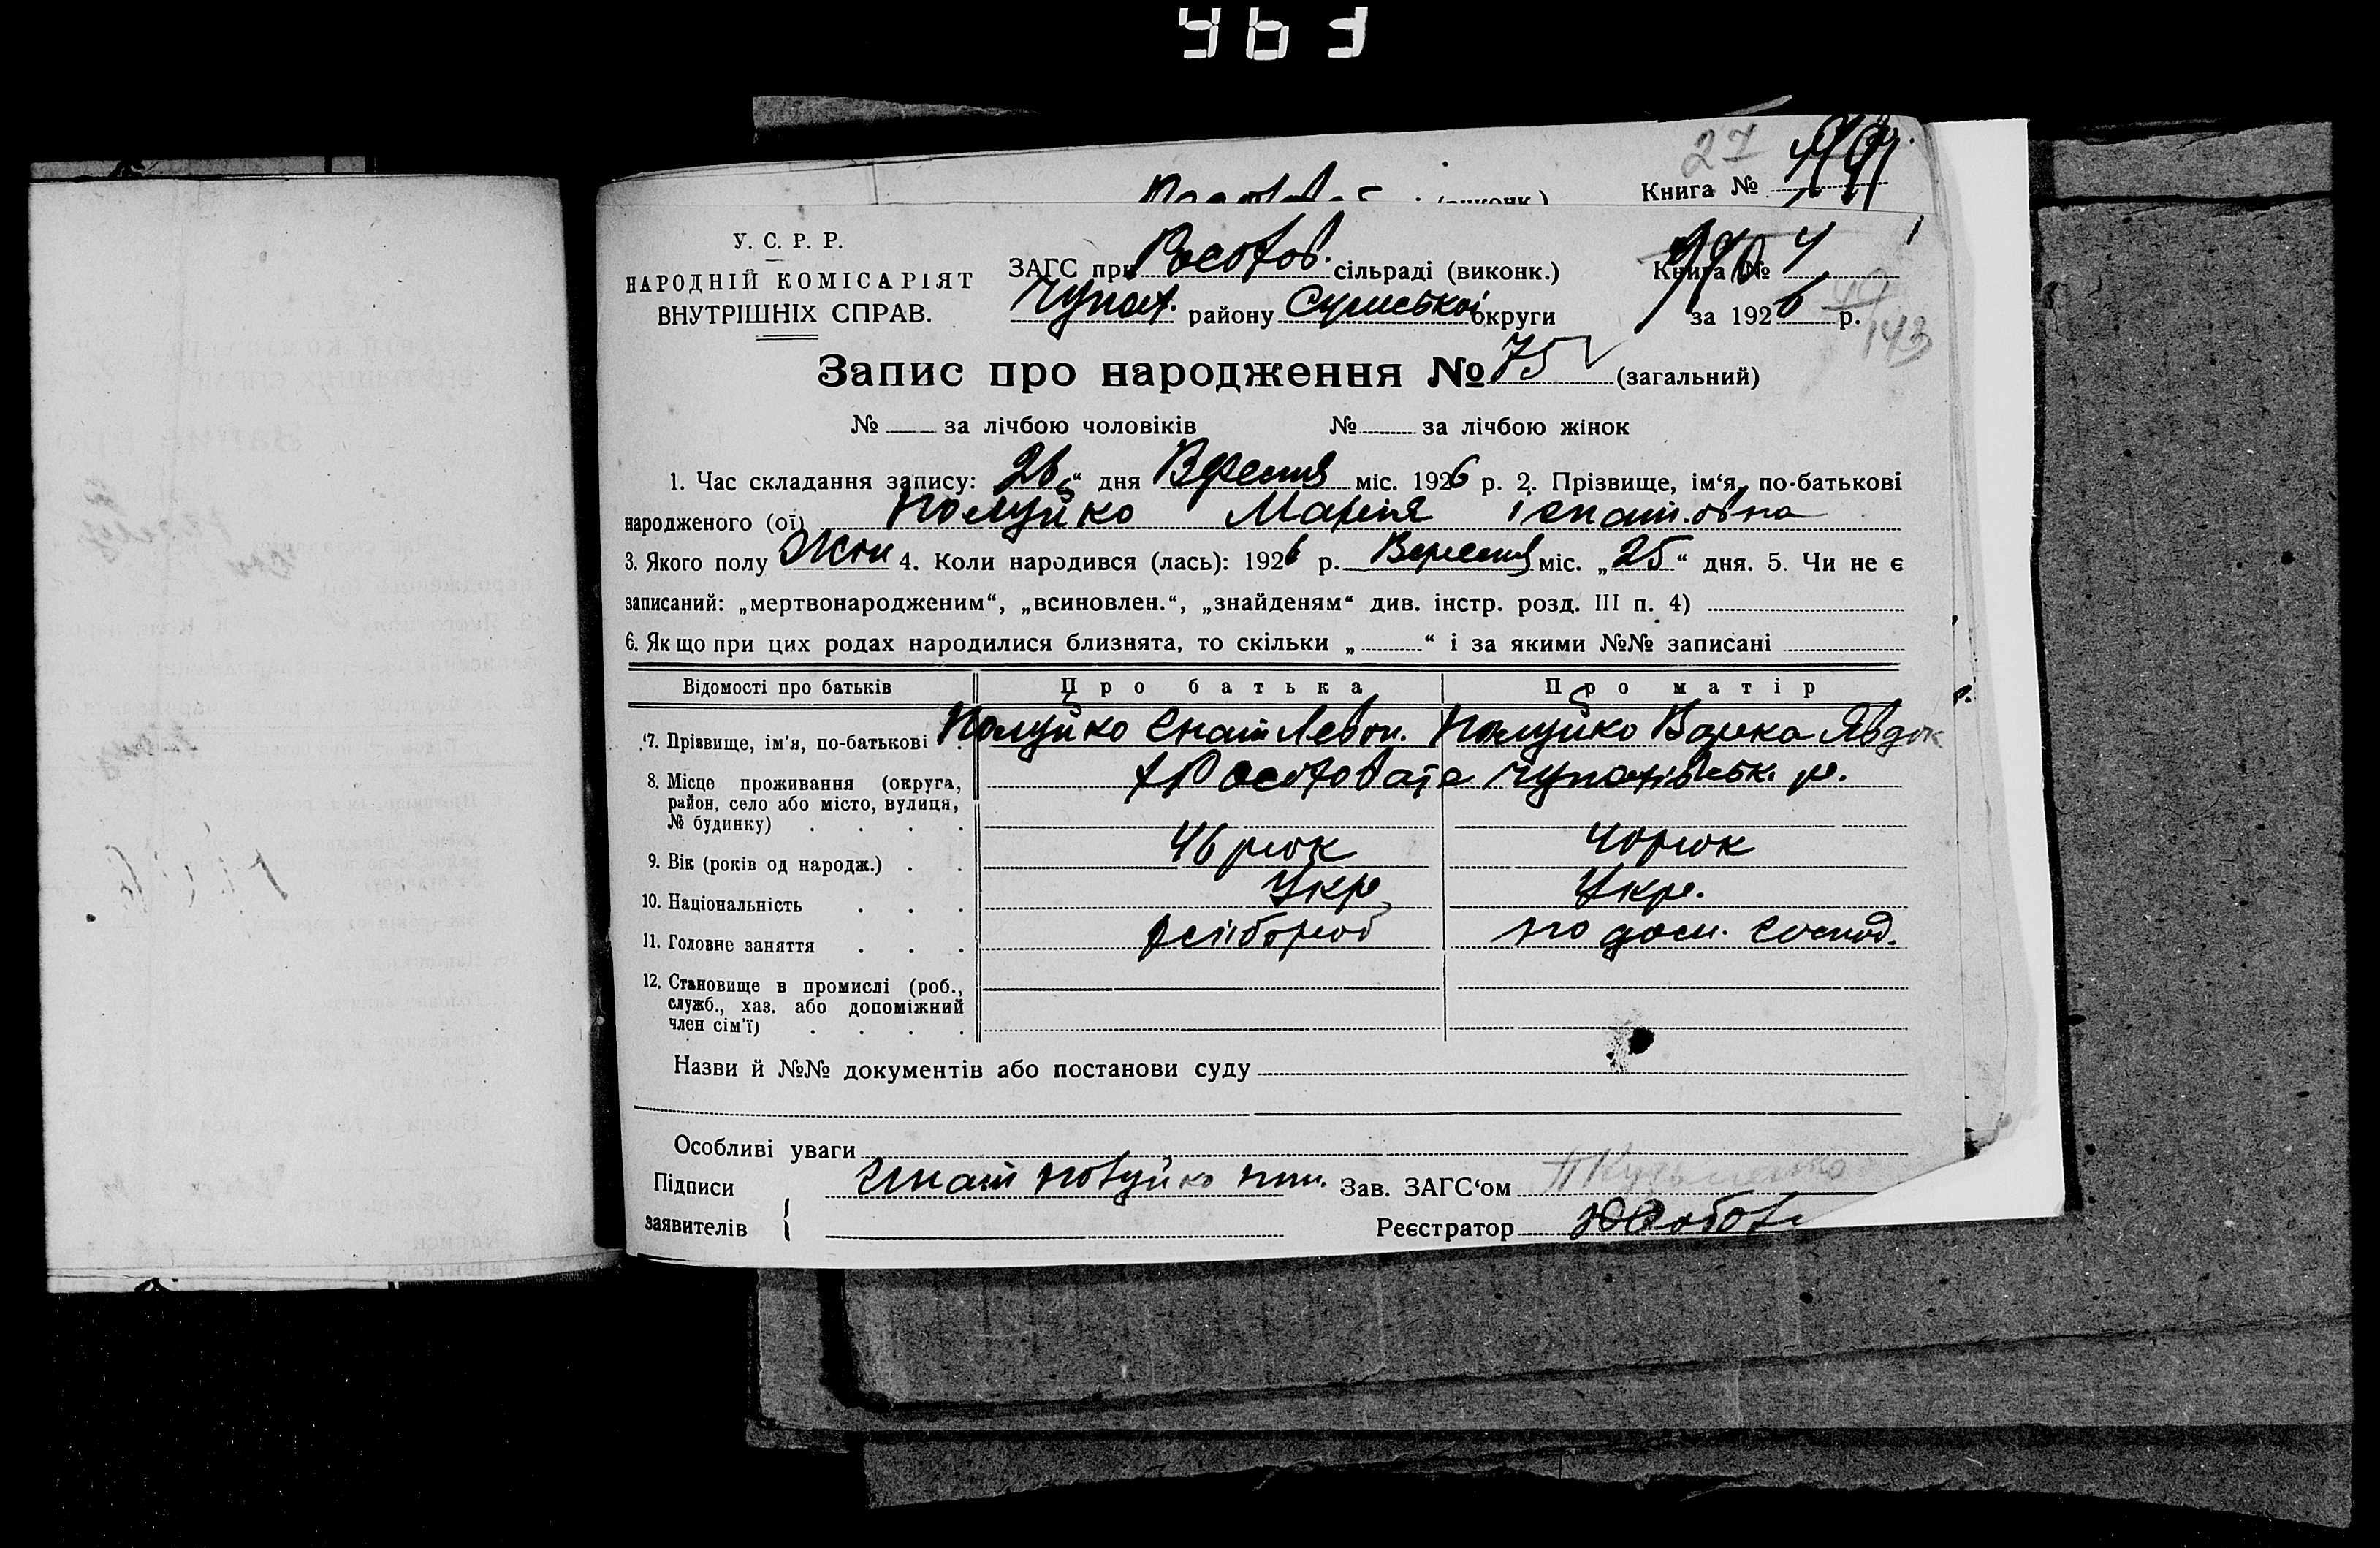 463
27
Книга №
(виконк.)
У. С. Р. Р.
НАРОДНІЙ КОМІСАРІЯТ
ВНУТРІШНІХ СПРАВ.
ЗАГС при Росохов. сільраді (виконк.)
Чупах. району Сумської округи
Книга № 4
за 1926 р.
143
Запис про народження № 75 (загальний)
№ за лічбою чоловіків № за лічбою жінок
1. Час складання запису: 26 " дня Вересня міс. 1926 р. 2. Прізвище, ім‘я, по-батькові
народженого (ої) Полуйко Марія
3. Якого полу Жін 4. Коли народився (лась): 1926 р. Вересня міс. „25“ дня. 5. Чи не є
записаний: „мертвонародженим“, „всиновлен.“, „знайденям“ див. інстр. розд. III п. 4)
6. Якщо при цих родах народилися близнята, то скільки „ “ і за якими №№ записані
Відомості про батьків Про батька Про матір
7. Прізвище, ім'я, по-батькові Полуйко Єнат Левон. Полуйко Варка Явдок
8. Місце проживання (округа,
район, село або місто, вулиця,
№ будинку)
Чупахівськ. р.
9. Вік (років од народж.) 46 рок 40 рок
10. Національність Укр Укр.
11. Головне заняття хлібороб по дом. господ.
12. Становище в промислі (роб.,
служб., хаз. або допоміжний
член сім'ї)
Назви й №№ документів або постанови суду
Особливі уваги
Підписи
заявителів
Зав. ЗАГС‘ом П Кузьменко
Реєстратор